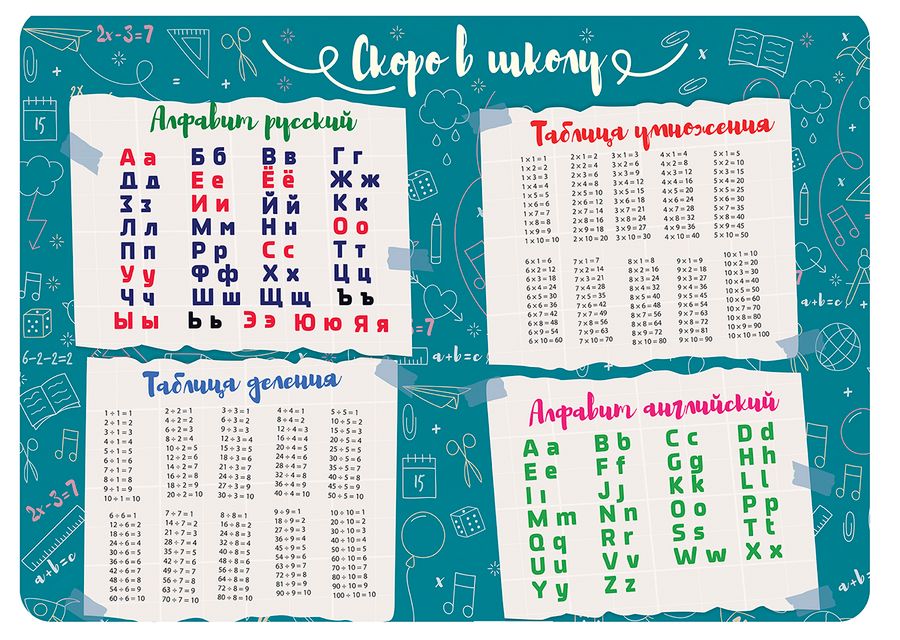 2x-3=7
Скоро в школу
15
2x
Алфавит русский
А а Б б В в Г г
Д д Е е Ё ё Ж ж
З з И и Й й К к
Л л М м Н н О о
П п Р р С с Т т
У у Ф ф Х х Ц ц
Ч ч Ш ш Щ щ Ъ ъ
Ы ы Ь ь Э э Ю ю Я я
Таблица умножения
1×1=1 2×1=2 3×1=3 4×1=4 5×1=5
1×2=2 2×2=4 3×2=6 4×2=8 5×2=10
1×3=3 2×3=6 3×3=9 4×3=12 5×3=15
1×4=4 2×4=8 3×4=12 4×4=16 5×4=20
1×5=5 2×5=10 3×5=15 4×5=20 5×5=25
1×6=6 2×6=12 3×6=18 4×6=24 5×6=30
1×7=7 2×7=14 3×7=21 4×7=28 5×7=35
1×8=8 2×8=16 3×8=24 4×8=32 5×8=40
1×9=9 2×9=18 3×9=27 4×9=36 5×9=45
1×10=10 2×10=20 3×10=30 4×10=40 5×10=50
6×1=6 7×1=7 8×1=8 9×1=9 10×1=10
6×2=12 7×2=14 8×2=16 9×2=18 10×2=20
6×3=18 7×3=21 8×3=24 9×3=27 10×3=30
6×4=24 7×4=28 8×4=32 9×4=36 10×4=40
6×5=30 7×5=35 8×5=40 9×5=45 10×5=50
6×6=36 7×6=42 8×6=48 9×6=54 10×6=60
6×7=42 7×7=49 8×7=56 9×7=63 10×7=70
6×8=48 7×8=56 8×8=64 9×8=72 10×8=80
6×9=54 7×9=63 8×9=72 9×9=81 10×9=90
6×10=60 7×10=70 8×10=80 9×10=90 10×10=100
a+b=c
=7
6-2-2=2
a+b=c
Таблица деления
1÷1=1 2÷2=1 3÷3=1 4÷4=1 5÷5=1
2÷1=2 4÷2=2 6÷3=2 8÷4=2 10÷5=2
3÷1=3 6÷2=3 9÷3=3 12÷4=3 15÷5=3
4÷1=4 8÷2=4 12÷3=4 16÷4=4 20÷5=4
5÷1=5 10÷2=5 15÷3=5 20÷4=5 25÷5=5
6÷1=6 12÷2=6 18÷3=6 24÷4=6 30÷5=6
7÷1=7 14÷2=7 21÷3=7 28÷4=7 35÷5=7
8÷1=8 16÷2=8 24÷3=8 32÷4=8 40÷5=8
9÷1=9 18÷2=9 27÷3=9 36÷4=9 45÷5=9
10÷1=10 20÷2=10 30÷3=10 40÷4=10 50÷5=10
6÷6=1 7÷7=1 8÷8=1 9÷9=1 10÷10=1
12÷6=2 14÷7=2 16÷8=2 18÷9=2 20÷10=2
18÷6=3 21÷7=3 24÷8=3 27÷9=3 30÷10=3
24÷6=4 28÷7=4 32÷8=4 36÷9=4 40÷10=4
30÷6=5 35÷7=5 40÷8=5 45÷9=5 50÷10=5
36÷6=6 42÷7=6 48÷8=6 54÷9=6 60÷10=6
42÷6=7 49÷7=7 56÷8=7 63÷9=7 70÷10=7
48÷6=8 56÷7=8 64÷8=8 72÷9=8 80÷10=8
54÷6=9 63÷7=9 72÷8=9 81÷9=9 90÷10=9
60÷6=10 70÷7=10 80÷8=10 90÷9=10 100÷10=10
Алфавит английский
A a B b C c D d
E e F f G g H h
I ı J j K k L l
M m N n O o P p
Q q R r S s T t
U u V v W w X x
Y y Z z
15
2x-3=7
a+b=c
a+b=